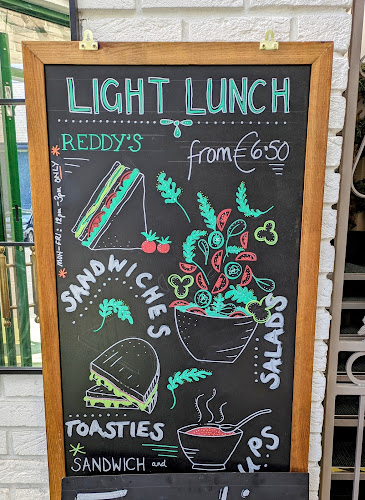 LIGHT LUNCH
REDDY'S
from €6.50
MON-FRI: 12pm-3pm ONLY
SANDWICHES
SALADS
TOASTIES
SANDWICH and